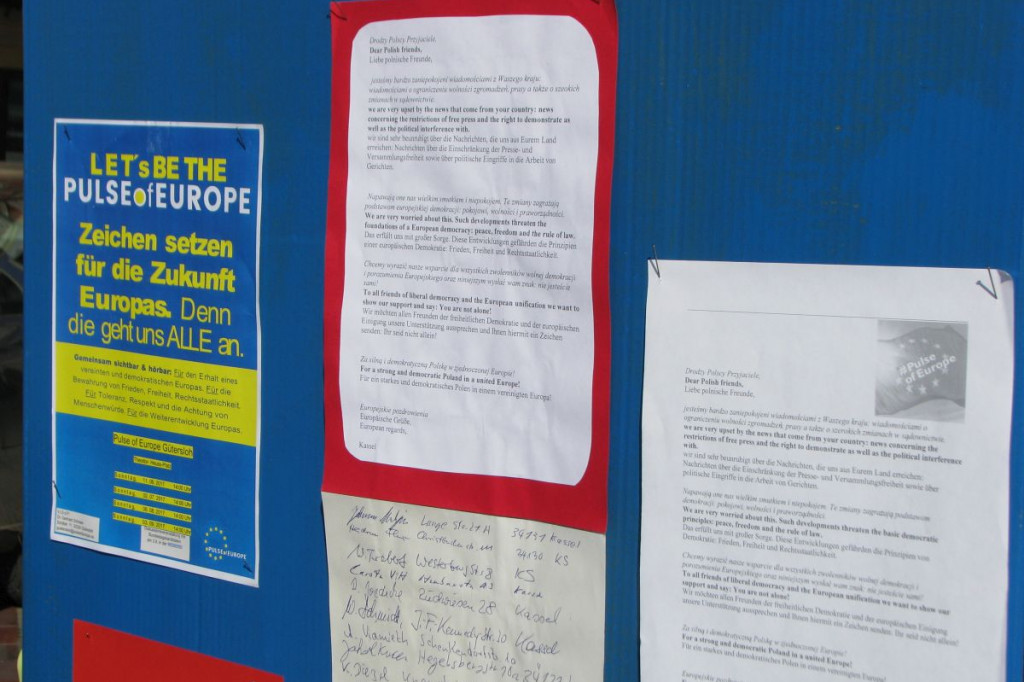 LET´s BE THE
PULSEofEUROPE
Zeichen setzen
für die Zukunft
Europas. Denn
die geht uns ALLE an.
Gemeinsam sichtbar & hörbar: Für den Erhalt eines
vereinten und demokratischen Europas. Für die
Bewahrung von Frieden, Freiheit, Rechtsstaatlichkeit.
Für Toleranz, Respekt und die Achtung von
Menschenwürde. Für die Weiterentwicklung Europas.
Pulse of Europe Gütersloh
#PULSEofEUROPE
Drodzy Polscy Przyjaciele,
Dear Polish friends,
Liebe polnische Freunde,
jesteśmy bardzo zaniepokojeni wiadomościami z Waszego kraju:
wiadomościami o ograniczeniu wolności zgromadzeń, prasy a także o szerokich
zmianach w sądownictwie.
we are very upset by the news that come from your country: news
concerning the restrictions of free press and the right to demonstrate as
well as the political interference with.
wir sind sehr beunruhigt über die Nachrichten, die uns aus Eurem Land
erreichen: Nachrichten über die Einschränkung der Presse- und
Versammlungsfreiheit sowie über politische Eingriffe in die Arbeit von
Gerichten.
Napawają one nas wielkim smutkiem i niepokojem. Te zmiany zagrażają
podstawom europejskiej demokracji: pokojowi, wolności i praworządności.
We are very worried about this. Such developments threaten the
foundations of a European democracy: peace, freedom and the rule of law.
Das erfüllt uns mit großer Sorge. Diese Entwicklungen gefährden die Prinzipien
einer europäischen Demokratie: Frieden, Freiheit und Rechtsstaatlichkeit.
Chcemy wyrazić nasze wsparcie dla wszystkich zwolenników wolnej demokracji
i porozumienia Europejskiego oraz niniejszym wysłać wam znak: nie jesteście
sami!
To all friends of liberal democracy and the European unification we want to
show our support and say: You are not alone!
Wir möchten allen Freunden der freiheitlichen Demokratie und der europäischen
Einigung unsere Unterstützung aussprechen und Ihnen hiermit ein Zeichen
senden: Ihr seid nicht allein!
Za silną i demokratyczną Polskę w zjednoczonej Europie!
For a strong and democratic Poland in a united Europe!
Für ein starkes und demokratisches Polen in einem vereinigten Europa!
Europejskie pozdrowienia
Europäische Grüße,
European regards,
Kassel
Lange Str.
34131 Kassel
34130 KS
KS
28 Kassel
J.-F.-Kennedy-Str. 20 Kassel
#Pulse
of Europe
Drodzy Polscy Przyjaciele,
Dear Polish friends,
Liebe polnische Freunde,
jesteśmy bardzo zaniepokojeni wiadomościami z Waszego kraju: wiadomościami o
ograniczeniu wolności zgromadzeń, prasy a także o szerokich zmianach w sądownictwie.
we are very upset by the news that come from your country: news concerning the
restrictions of free press and the right to demonstrate as well as the political interference
with.
wir sind sehr beunruhigt über die Nachrichten, die uns aus Eurem Land erreichen:
Nachrichten über die Einschränkung der Presse- und Versammlungsfreiheit sowie über
politische Eingriffe in die Arbeit von Gerichten.
Napawają one nas wielkim smutkiem i niepokojem. Te zmiany zagrażają podstawom
demokracji: pokojowi, wolności i praworządności.
We are very worried about this. Such developments threaten the basic democratic
principles: peace, freedom and the rule of law.
Das erfüllt uns mit großer Sorge. Diese Entwicklungen gefährden die Prinzipien von
Demokratie: Frieden, Freiheit und Rechtsstaatlichkeit.
Chcemy wyrazić nasze wsparcie dla wszystkich zwolenników wolnej demokracji i
porozumienia Europejskiego oraz niniejszym wysłać wam znak: nie jesteście sami!
To all friends of liberal democracy and the European unification we want to show our
support and say: You are not alone!
Wir möchten allen Freunden der freiheitlichen Demokratie und der europäischen Einigung
unsere Unterstützung aussprechen und Ihnen hiermit ein Zeichen senden: Ihr seid nicht allein!
Za silną i demokratyczną Polskę w zjednoczonej Europie!
For a strong and democratic Poland in a united Europe!
Für ein starkes und demokratisches Polen in einem vereinigten Europa!